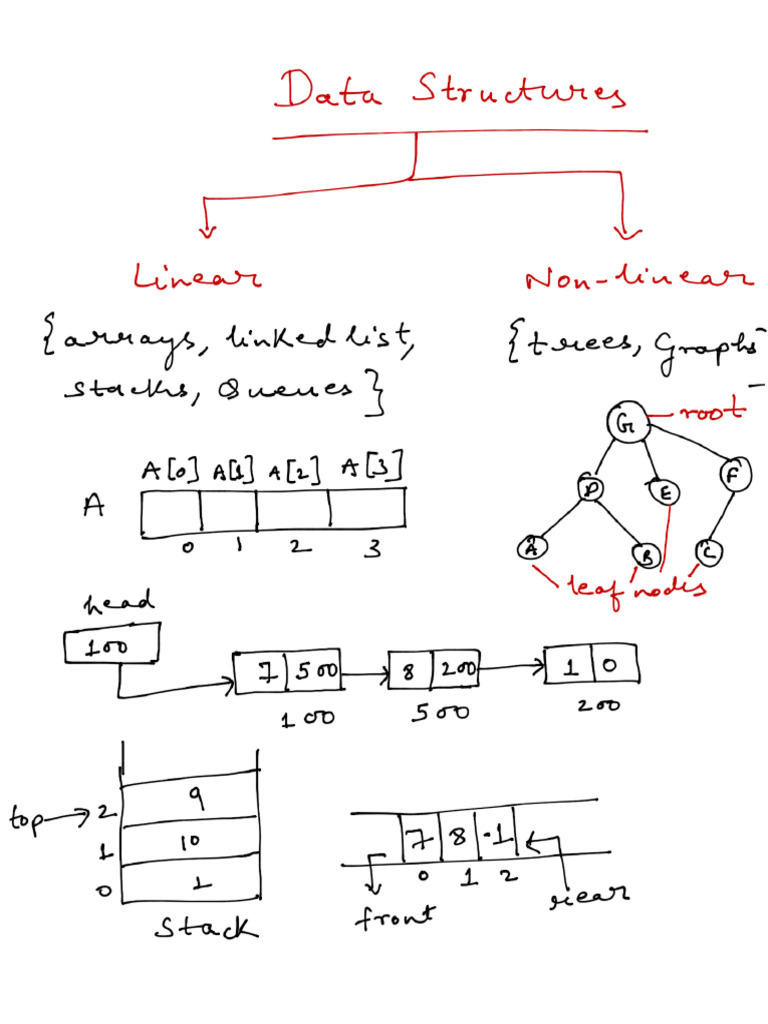 Data Structures
Linear
Non-linear
{arrays, linked list,
stacks, Queues}
{trees, Graphs
root
G
D E F
A B C
leaf nodes
A[0] A[1] A[2] A[3]
A
0 1 2 3
head
100
7 500 8 200 1 0
100 500 200
top → 2 9
1 10
0 1
Stack
7 8 -1
0 1 2
front
rear